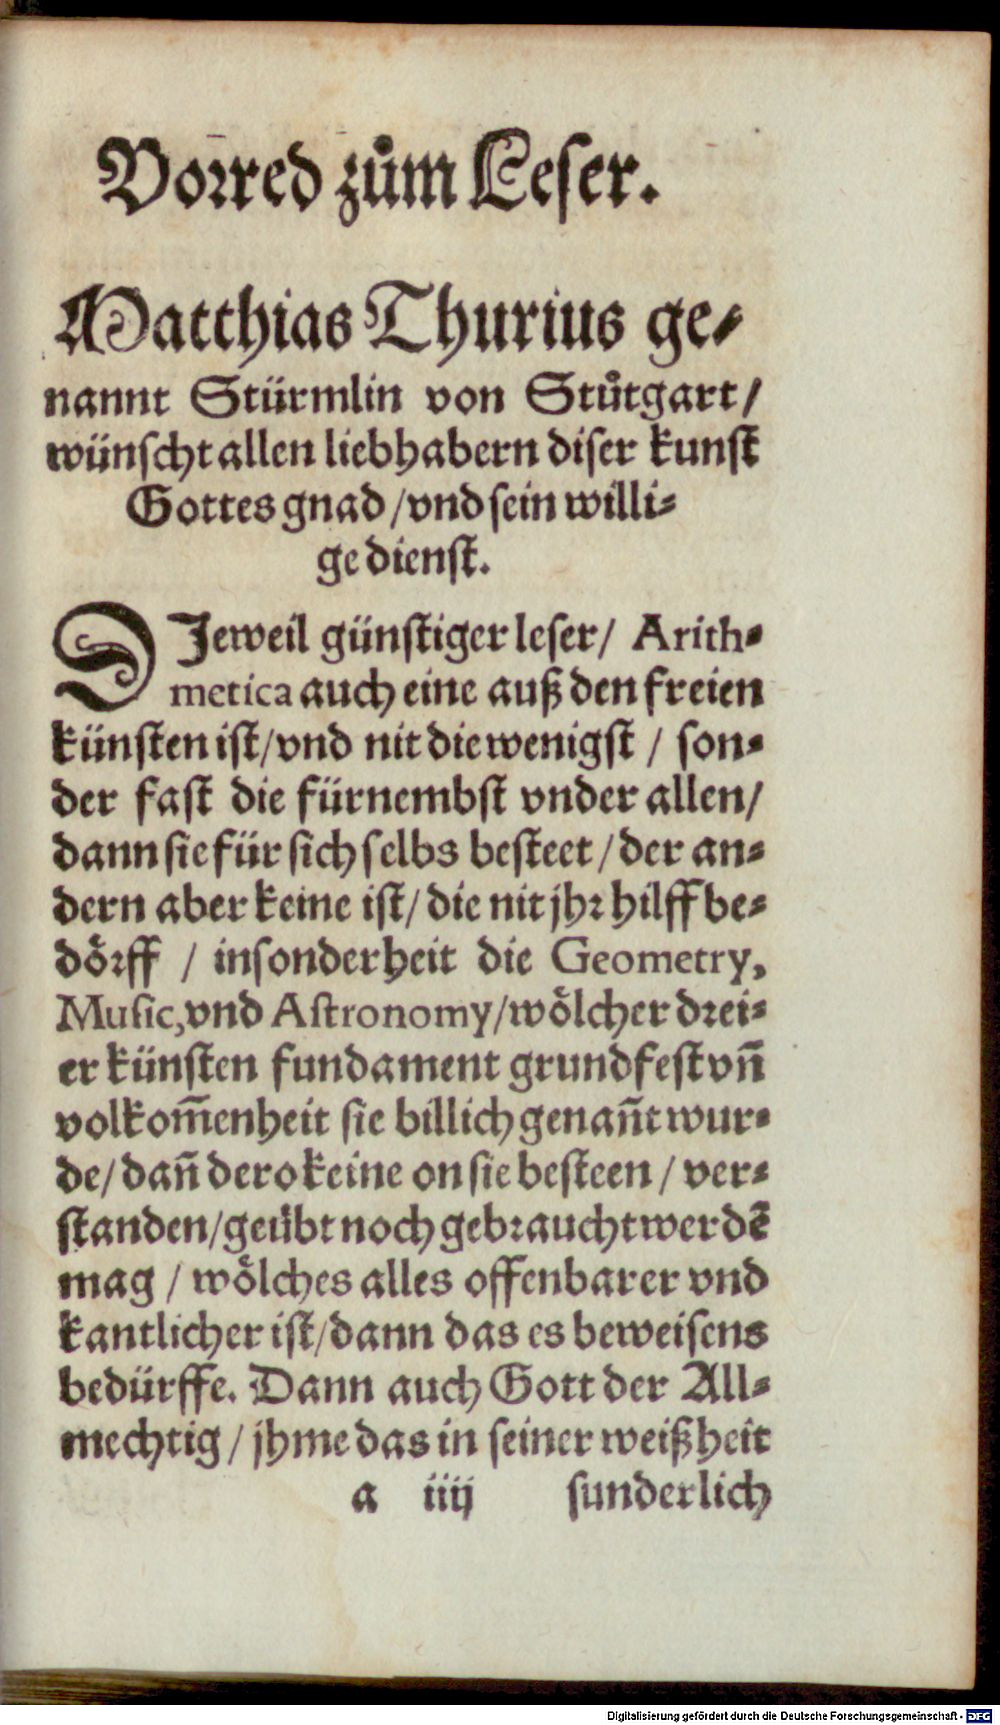 Vorred zům Leser.
Matthias Thurius ge-
nannt Stürmlin von Stůtgart/
wünscht allen liebhabern diser kunst
Gottes gnad/vnd sein willi-
ge dienst.
DJeweil günstiger leser/ Arith-
metica auch eine auß den freien
künsten ist/vnd nit die wenigst / son-
der fast die fürnembst vnder allen/
dann sie für sich selbs besteet/der an-
dern aber keine ist/die nit jhr hilff be-
dörff / insonderheit die Geometry,
Music,vnd Astronomy/wölcher drei-
er künsten fundament grundfest vn̄
volkom̄enheit sie billich genan̄t wur-
de/dan̄ dero keine on sie besteen/ver-
standen/geübt noch gebraucht werdē
mag / wölches alles offenbarer vnd
kantlicher ist/dann das es beweisens
bedürffe. Dann auch Gott der All-
mechtig/jhme das in seiner weißheit
a iiij sunderlich
Digitalisierung gefördert durch die Deutsche Forschungsgemeinschaft - DFG